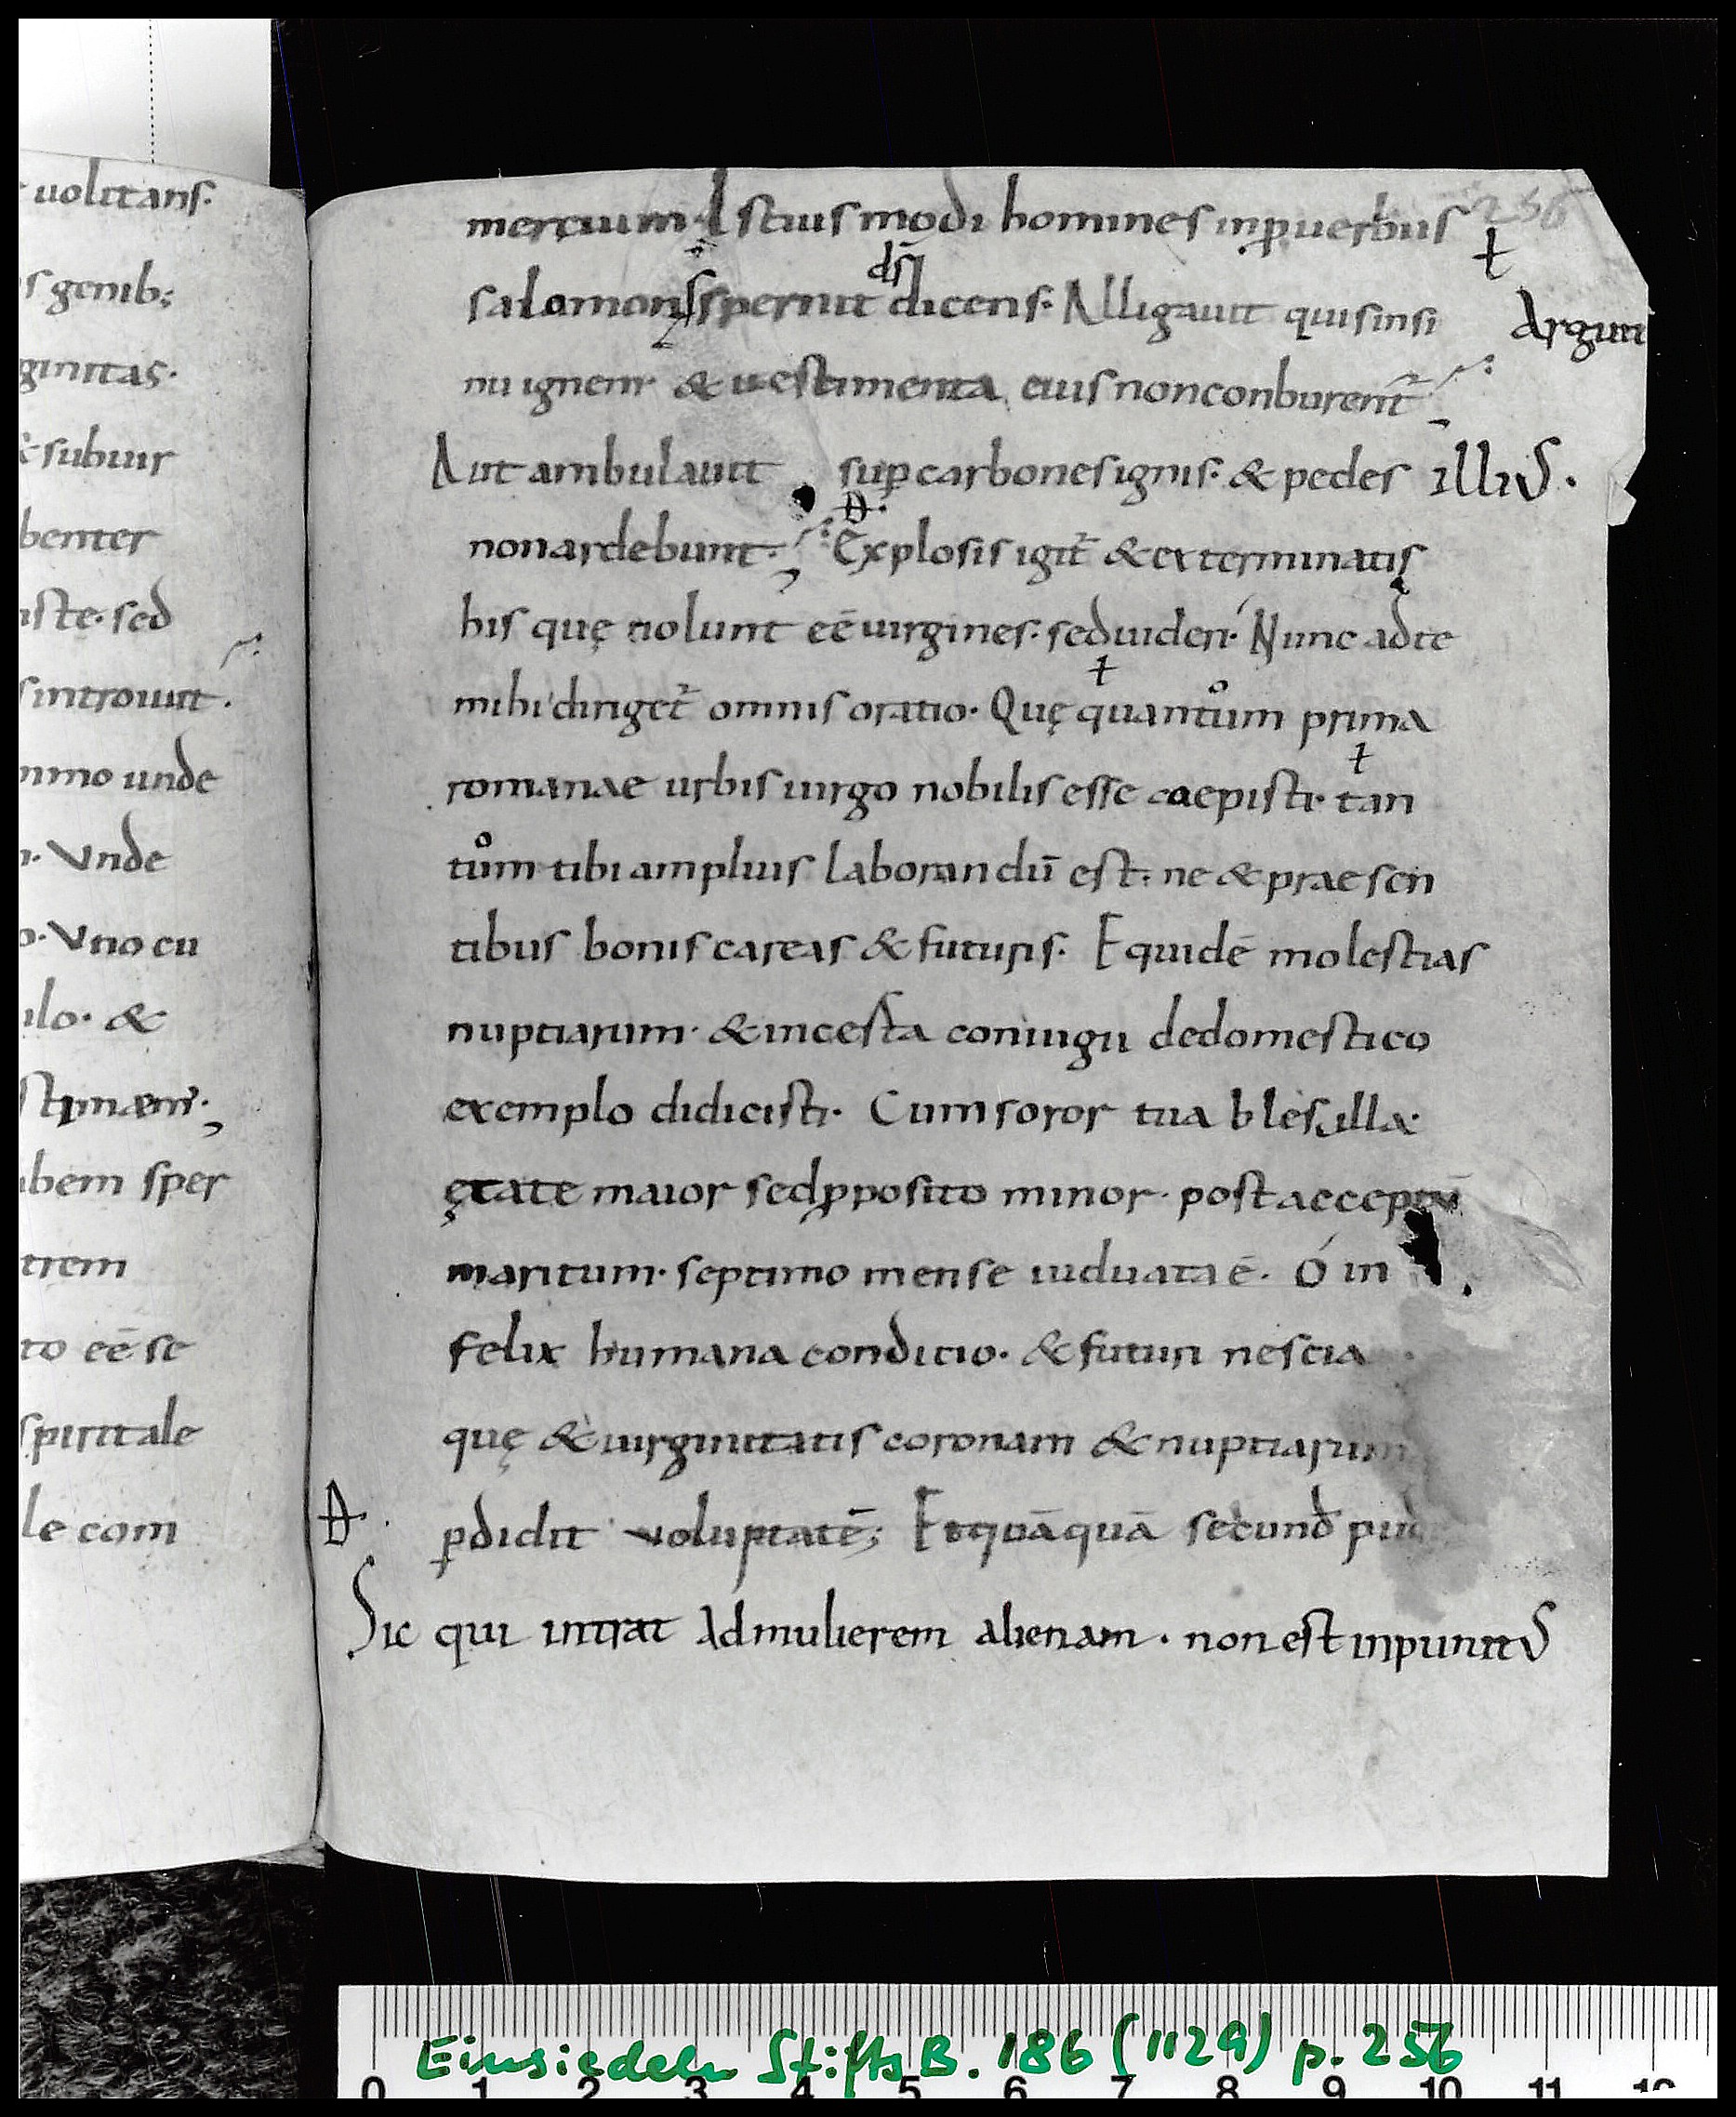 uolitans.
s genib;
ginitas.
& subuir
benter
iste. sed
sintrouit.
mmo unde
n. Vnde
o. Vno cu
ulo. &
stimaem.
ubem sper
trem
to eē se
spiritale
le com
256
mercium. Istius modi homines inꝓuerbiis ł
dſ
salomonis spernit dicens. Alligauit quis insi Arguit
nu ignem. & uestimenta eius nonconburent̄
Aut ambulauit suꝑ carbones ignis. & pedes illiꝰ.
nonardebunt. Explosis igit̄ & exterminatis
his quę nolunt eē uirgines. seduideri. Nunc adte
mihi diriget̄ omnis oratio. Quę quantum prima
romanae urbis uirgo nobilis esse caepisti. tan
tum tibi amplius laborandū est. ne & praesen
tibus bonis careas & futuris. Equidē molestias
nuptiarum. & incesta coniugii dedomestico
exemplo didicisti. Cum soror tua blesilla.
ętate maior sed ꝓposito minor. post acceptū
maritum. septimo mense uiduata ē. Ó in
felix humana conditio. & futuri nescia
quę & uirginitatis coronam & nuptiarum
ꝑdidit voluptatē; Et quāquā secund
Sic qui intrat Ad mulierem alienam. non est inpunitꝰ
Einsiedeln StiftsB. 186 (1129) p. 256
0 1 2 3 4 5 6 7 8 9 10 11